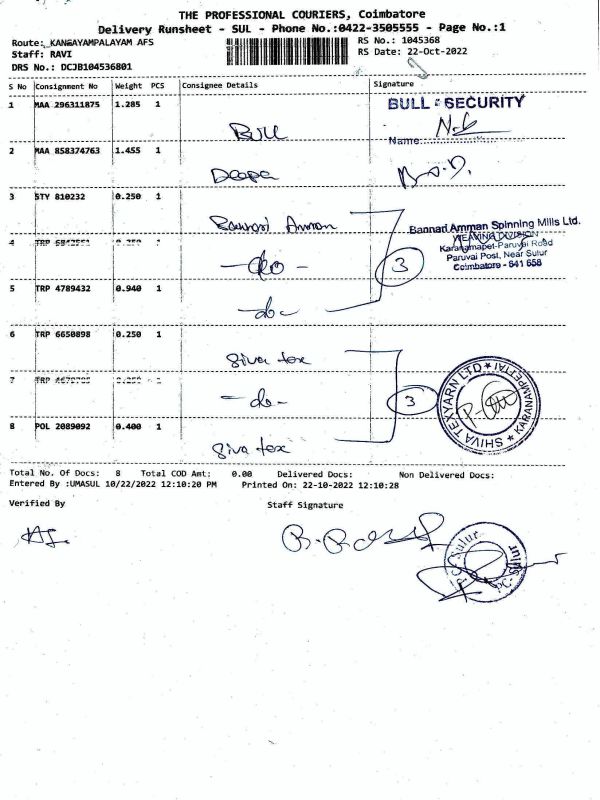 THE PROFESSIONAL COURIERS, Coimbatore
Delivery Runsheet - SUL - Phone No.:0422-3505555 - Page No.:1
Route: KANGAYAMPALAYAM AFS
RS No.: 1045368
Staff: RAVI
RS Date: 22-Oct-2022
DRS No.: DCJB104536801
S No Consignment No Weight PCS Consignee Details Signature
1 MAA 296311875 1.285 1 Bull
BULL SECURITY
Name:
2 MAA 858374763 1.455 1 Deepa
3 STY 810232 0.250 1 Bannari Amman
Bannari Amman Spinning Mills Ltd.
WEAVING DIVISION
Karanampet-Paruvai Road
Paruvai Post, Near Sulur
Coimbatore - 641 658
4 TRP 1 -do-
3
5 TRP 4789432 0.940 1 -do-
6 TRP 6650898 0.250 1 Siva tex
7 TRP 1 -do-
3
SHIVA TEXYARN LTD * KARANAMPETTAI *
8 POL 2089092 0.400 1 Siva tex
Total No. Of Docs: 8 Total COD Amt: 0.00 Delivered Docs: Non Delivered Docs:
Entered By :UMASUL 10/22/2022 12:10:20 PM Printed On: 22-10-2022 12:10:28
Verified By Staff Signature
PC-Sulur
PC-Sulur